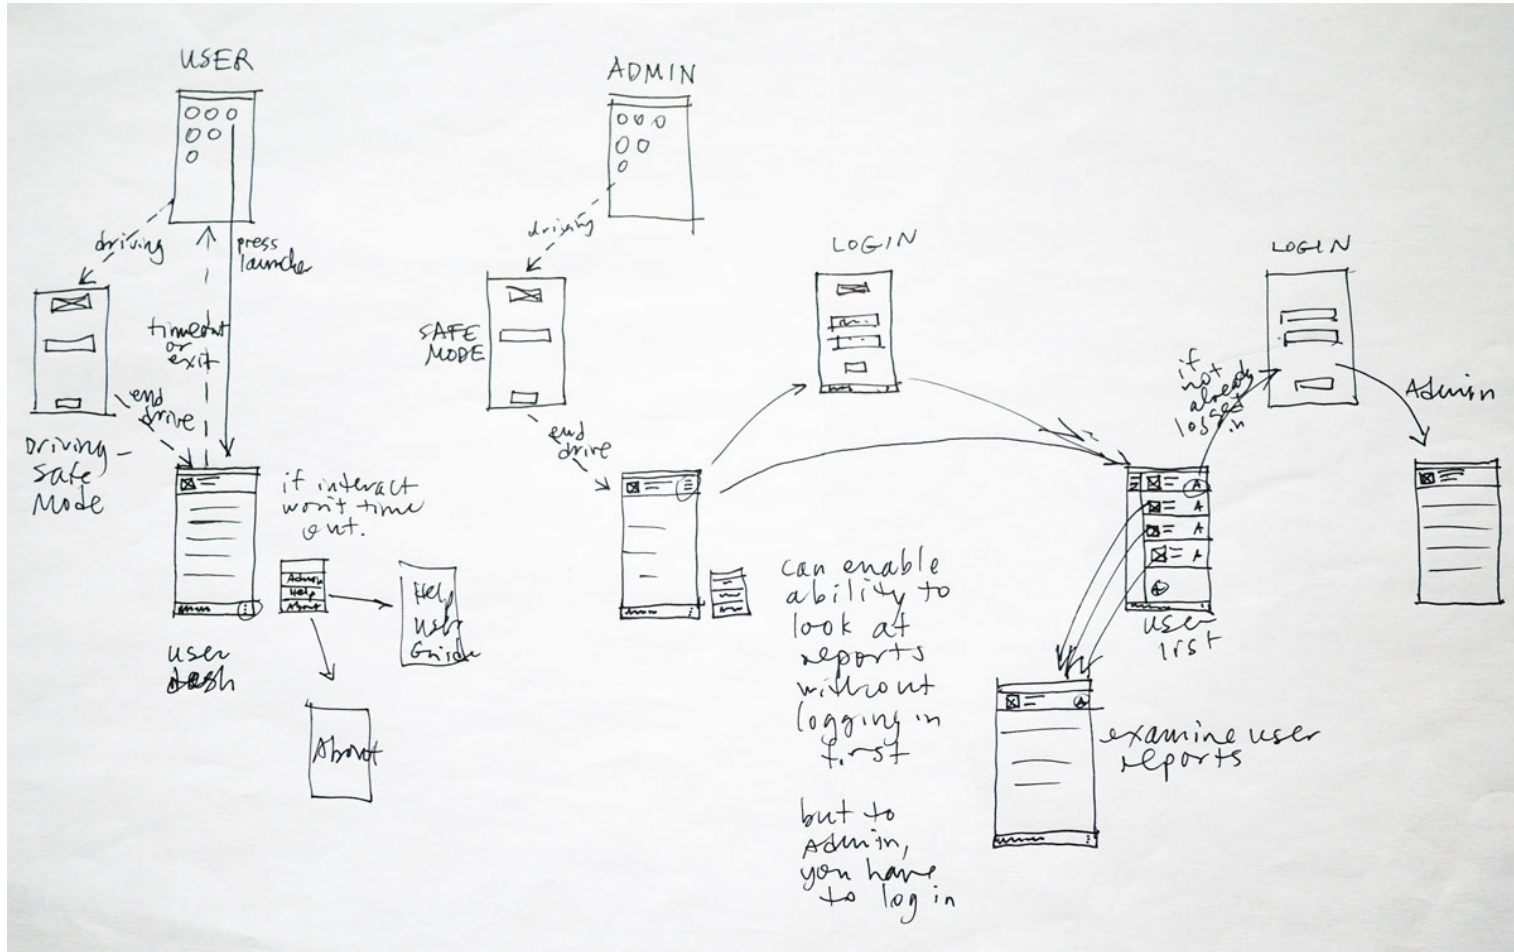 USER
driving
press
launcher
timeout
or
exit
end
drive
Driving-
Safe
Mode
if interact
won't time
out.
Admin
Help
About
Help
User
Guide
user
dash
About
ADMIN
driving
SAFE
MODE
end
drive
LOGIN
can enable
ability to
look at
reports
without
logging in
first
but to
Admin,
you have
to log in
if
not
already
logged
in
A
A
A
A
user
list
A
examine user
reports
LOGIN
Admin